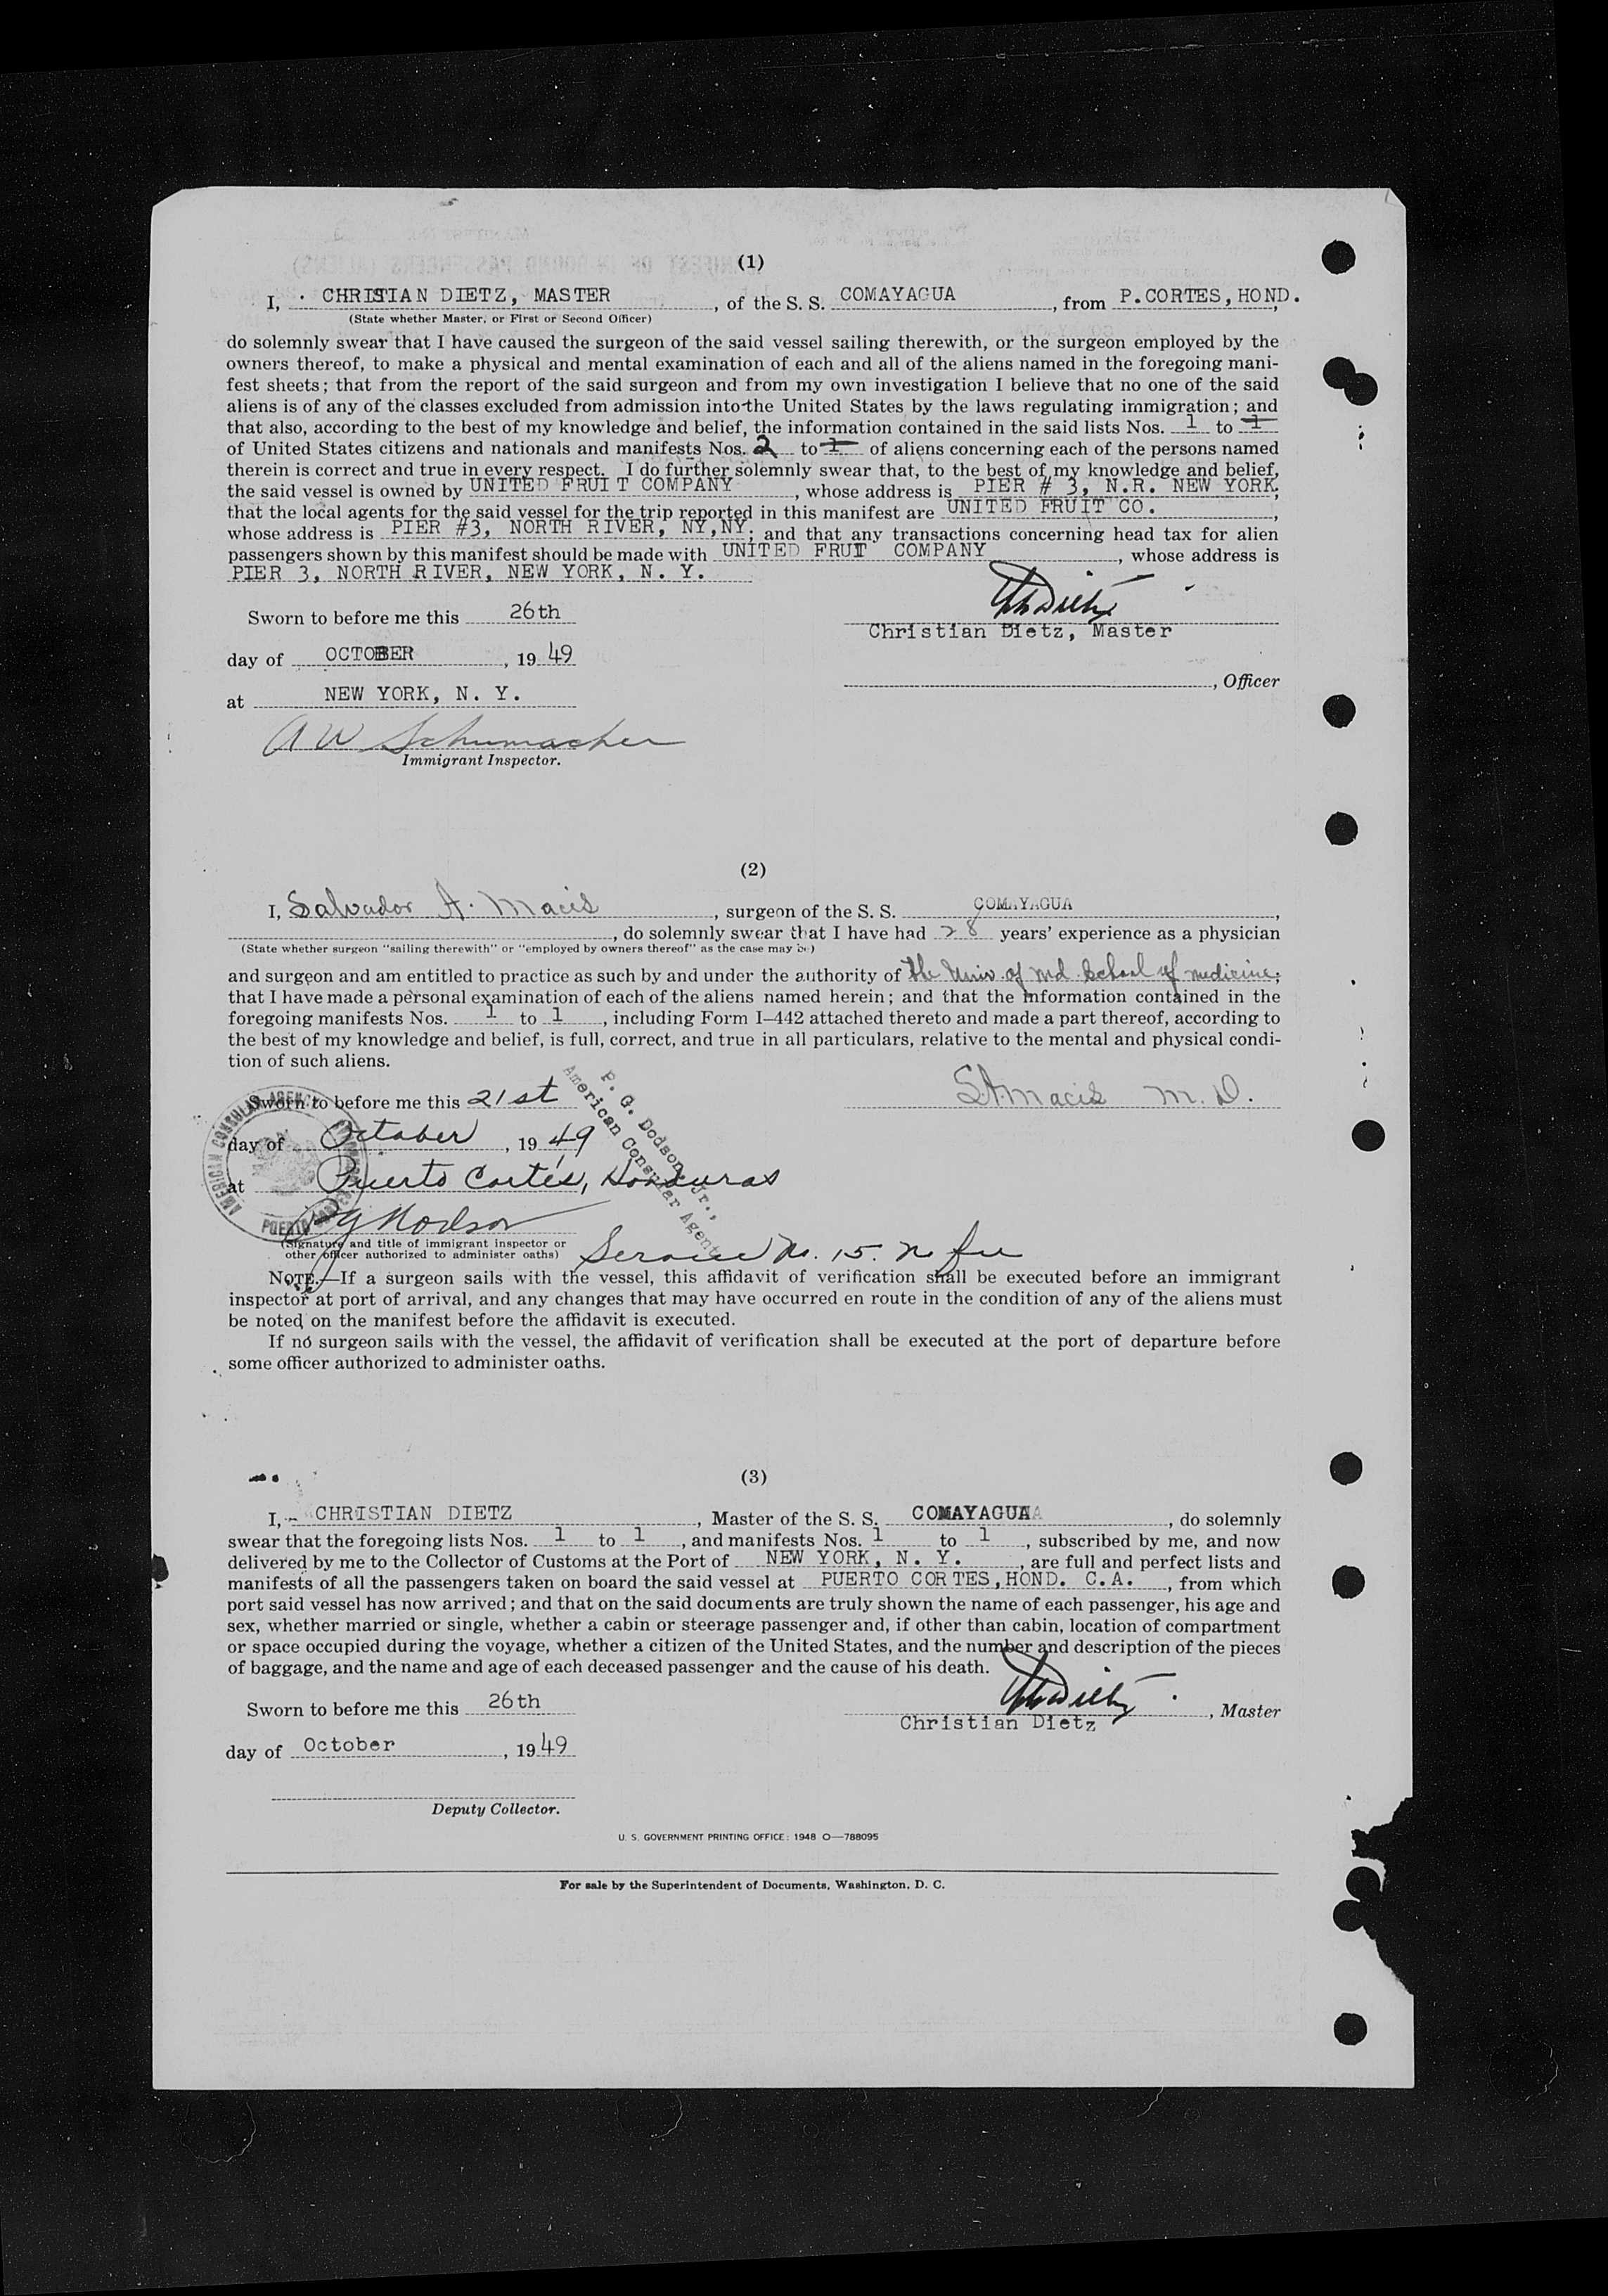 (1)
I, CHRISTIAN DIETZ, MASTER, of the S. S. COMAYAGUA, from P.CORTES, HOND.,
(State whether Master, or First or Second Officer)
do solemnly swear that I have caused the surgeon of the said vessel sailing therewith, or the surgeon employed by the
owners thereof, to make a physical and mental examination of each and all of the aliens named in the foregoing mani-
fest sheets; that from the report of the said surgeon and from my own investigation I believe that no one of the said
aliens is of any of the classes excluded from admission into the United States by the laws regulating immigration; and
that also, according to the best of my knowledge and belief, the information contained in the said lists Nos. 1 to 1
of United States citizens and nationals and manifests Nos. 2 to 1 of aliens concerning each of the persons named
therein is correct and true in every respect. I do further solemnly swear that, to the best of my knowledge and belief,
the said vessel is owned by UNITED FRUIT COMPANY, whose address is PIER # 3, N.R. NEW YORK,
that the local agents for the said vessel for the trip reported in this manifest are UNITED FRUIT CO.,
whose address is PIER #3, NORTH RIVER, NY,NY; and that any transactions concerning head tax for alien
passengers shown by this manifest should be made with UNITED FRUIT COMPANY, whose address is
PIER 3, NORTH RIVER, NEW YORK, N. Y.
Sworn to before me this 26th
Christian Dietz, Master
day of OCTOBER, 19 49
, Officer
at NEW YORK, N. Y.
A W Schumacher
Immigrant Inspector.
(2)
I, Salvador A. Macis, surgeon of the S. S. COMAYAGUA,
, do solemnly swear that I have had 28 years' experience as a physician
(State whether surgeon "sailing therewith" or "employed by owners thereof" as the case may be)
and surgeon and am entitled to practice as such by and under the authority of the Univ. of Md. School of medicine;
that I have made a personal examination of each of the aliens named herein; and that the information contained in the
foregoing manifests Nos. 1 to 1, including Form I–442 attached thereto and made a part thereof, according to
the best of my knowledge and belief, is full, correct, and true in all particulars, relative to the mental and physical condi-
tion of such aliens.
AMERICAN CONSULAR AGENCY
PUERTO CORTES
P. G. Dodson, Jr.,
American Consular Agent
Sworn to before me this 21st
S A Macis M. D.
day of October, 19 49
at Puerto Cortés, Honduras
P G Dodson
(Signature and title of immigrant inspector or
other officer authorized to administer oaths)
Service No. 15. no fee
NOTE.—If a surgeon sails with the vessel, this affidavit of verification shall be executed before an immigrant
inspector at port of arrival, and any changes that may have occurred en route in the condition of any of the aliens must
be noted on the manifest before the affidavit is executed.
If no surgeon sails with the vessel, the affidavit of verification shall be executed at the port of departure before
some officer authorized to administer oaths.
(3)
I, CHRISTIAN DIETZ, Master of the S. S. COMAYAGUA, do solemnly
swear that the foregoing lists Nos. 1 to 1, and manifests Nos. 1 to 1, subscribed by me, and now
delivered by me to the Collector of Customs at the Port of NEW YORK, N. Y., are full and perfect lists and
manifests of all the passengers taken on board the said vessel at PUERTO CORTES, HOND. C.A., from which
port said vessel has now arrived; and that on the said documents are truly shown the name of each passenger, his age and
sex, whether married or single, whether a cabin or steerage passenger and, if other than cabin, location of compartment
or space occupied during the voyage, whether a citizen of the United States, and the number and description of the pieces
of baggage, and the name and age of each deceased passenger and the cause of his death.
Ch Dietz
Sworn to before me this 26th
, Master
Christian Dietz
day of October, 19 49
Deputy Collector.
U. S. GOVERNMENT PRINTING OFFICE: 1948 O—788095
For sale by the Superintendent of Documents, Washington, D. C.